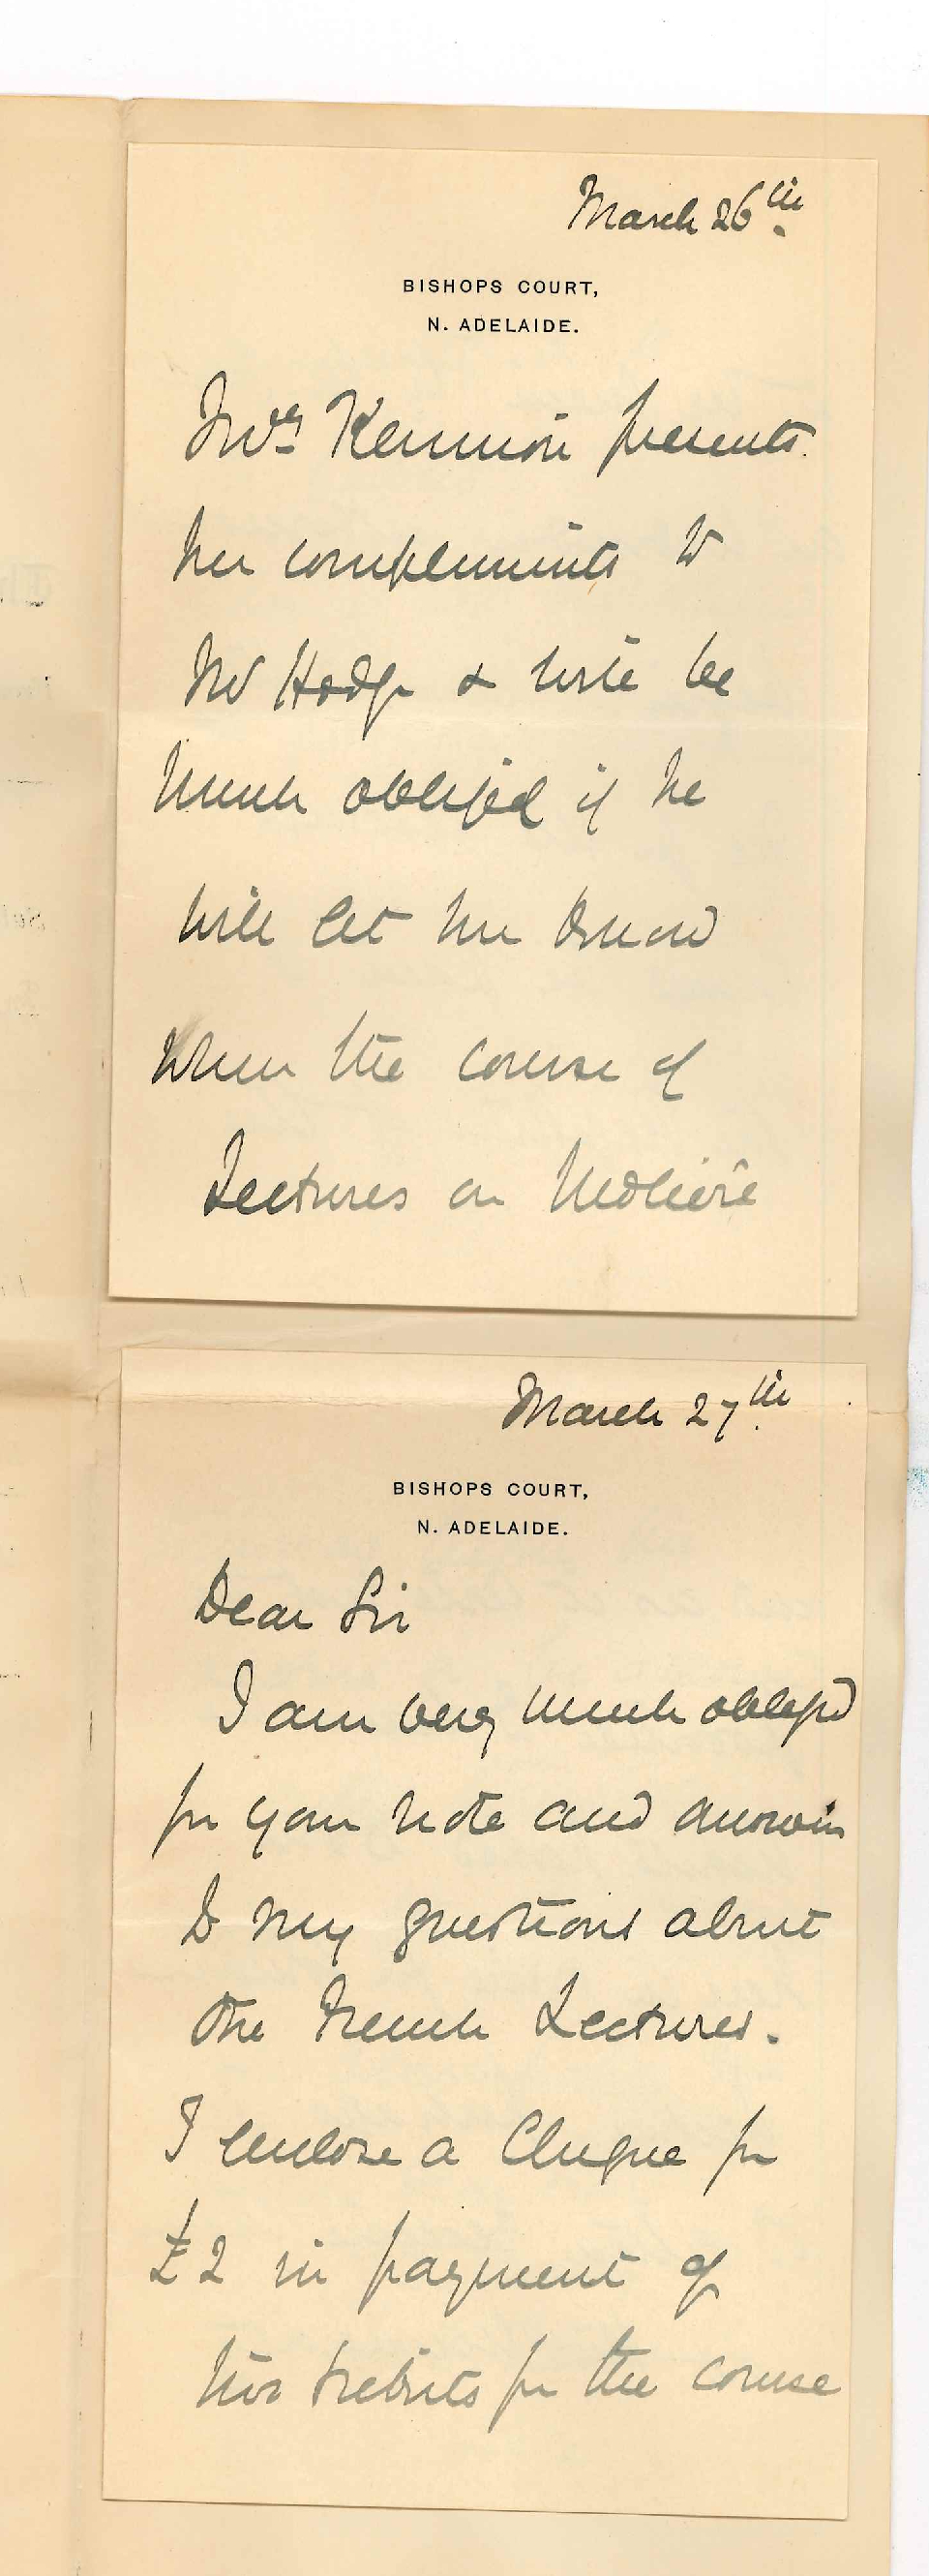 March 26th
BISHOPS COURT,
N. ADELAIDE.
Mrs Kennion presents
her compliments to
Mr Hodge & will be
much obliged if he
will let her know
when the course of
Lectures on Molière
March 27th
BISHOPS COURT,
N. ADELAIDE.
Dear Sir
I am very much obliged
for your note and answers
to my questions about
the French Lectures.
I enclose a Cheque for
£2 in payment of
two tickets for the course